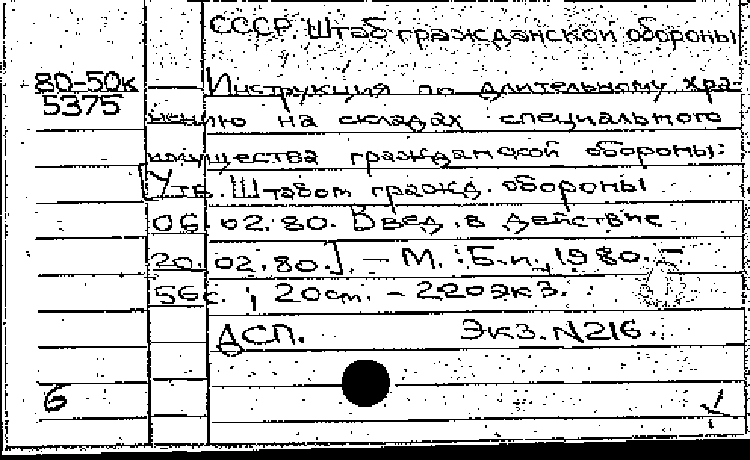 СССР. Штаб гражданской обороны
80-50к
5375
Инструкция по длительному хра-
нению на складах специального
имущества гражданской обороны:
[Утв. Штабом гражд. обороны
06.02.80. Введ. в действие
20.02.80.]. - М.: Б.и., 1980. -
56с. ; 20см. - 220экз.
ДСП. Экз. N216.
6